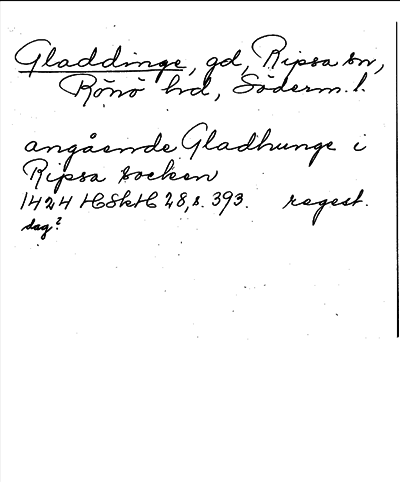 Gladdinge, gd, Ripsa sn,
Rönö hd, Söderm. l.
angående Gladhunge i
Ripsa socken
1424 HSkH 28, s. 393. regest.
dag?